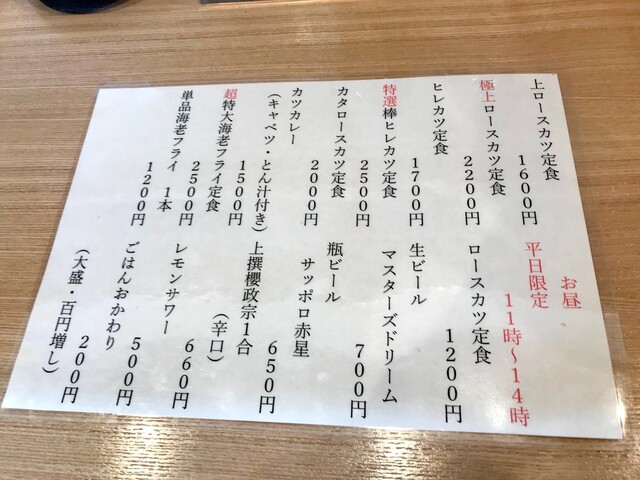 上ロースカツ定食
1600円
極上ロースカツ定食
2200円
ヒレカツ定食
1700円
特選棒ヒレカツ定食
2500円
カタロースカツ定食
2000円
カツカレー
（キャベツ・とん汁付き）
1500円
超特大海老フライ定食
2500円
単品海老フライ 1本
1200円
お昼
平日限定
11時～14時
ロースカツ定食
1200円
生ビール
マスターズドリーム
700円
瓶ビール
サッポロ赤星
650円
上撰櫻政宗1合
（辛口）
660円
レモンサワー
500円
ごはんおかわり
200円
（大盛・百円増し）